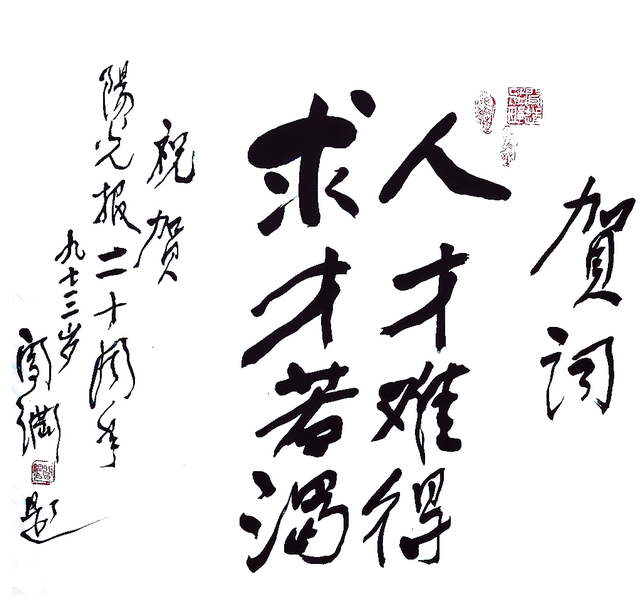 贺词
人才难得
求才若渴
祝贺
陽光报二十周年
九十三岁
题